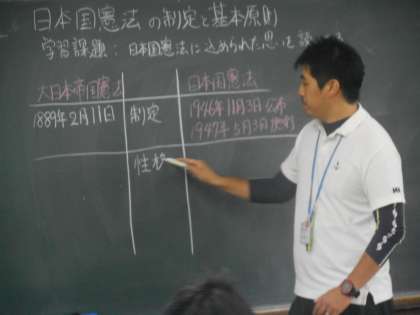 日本国憲法の制定と基本原則
学習課題：日本国憲法に込められた思いを
大日本帝国憲法
日本国憲法
1889年2月11日
制定
1946年11月3日公布
1947年5月3日施行
性格